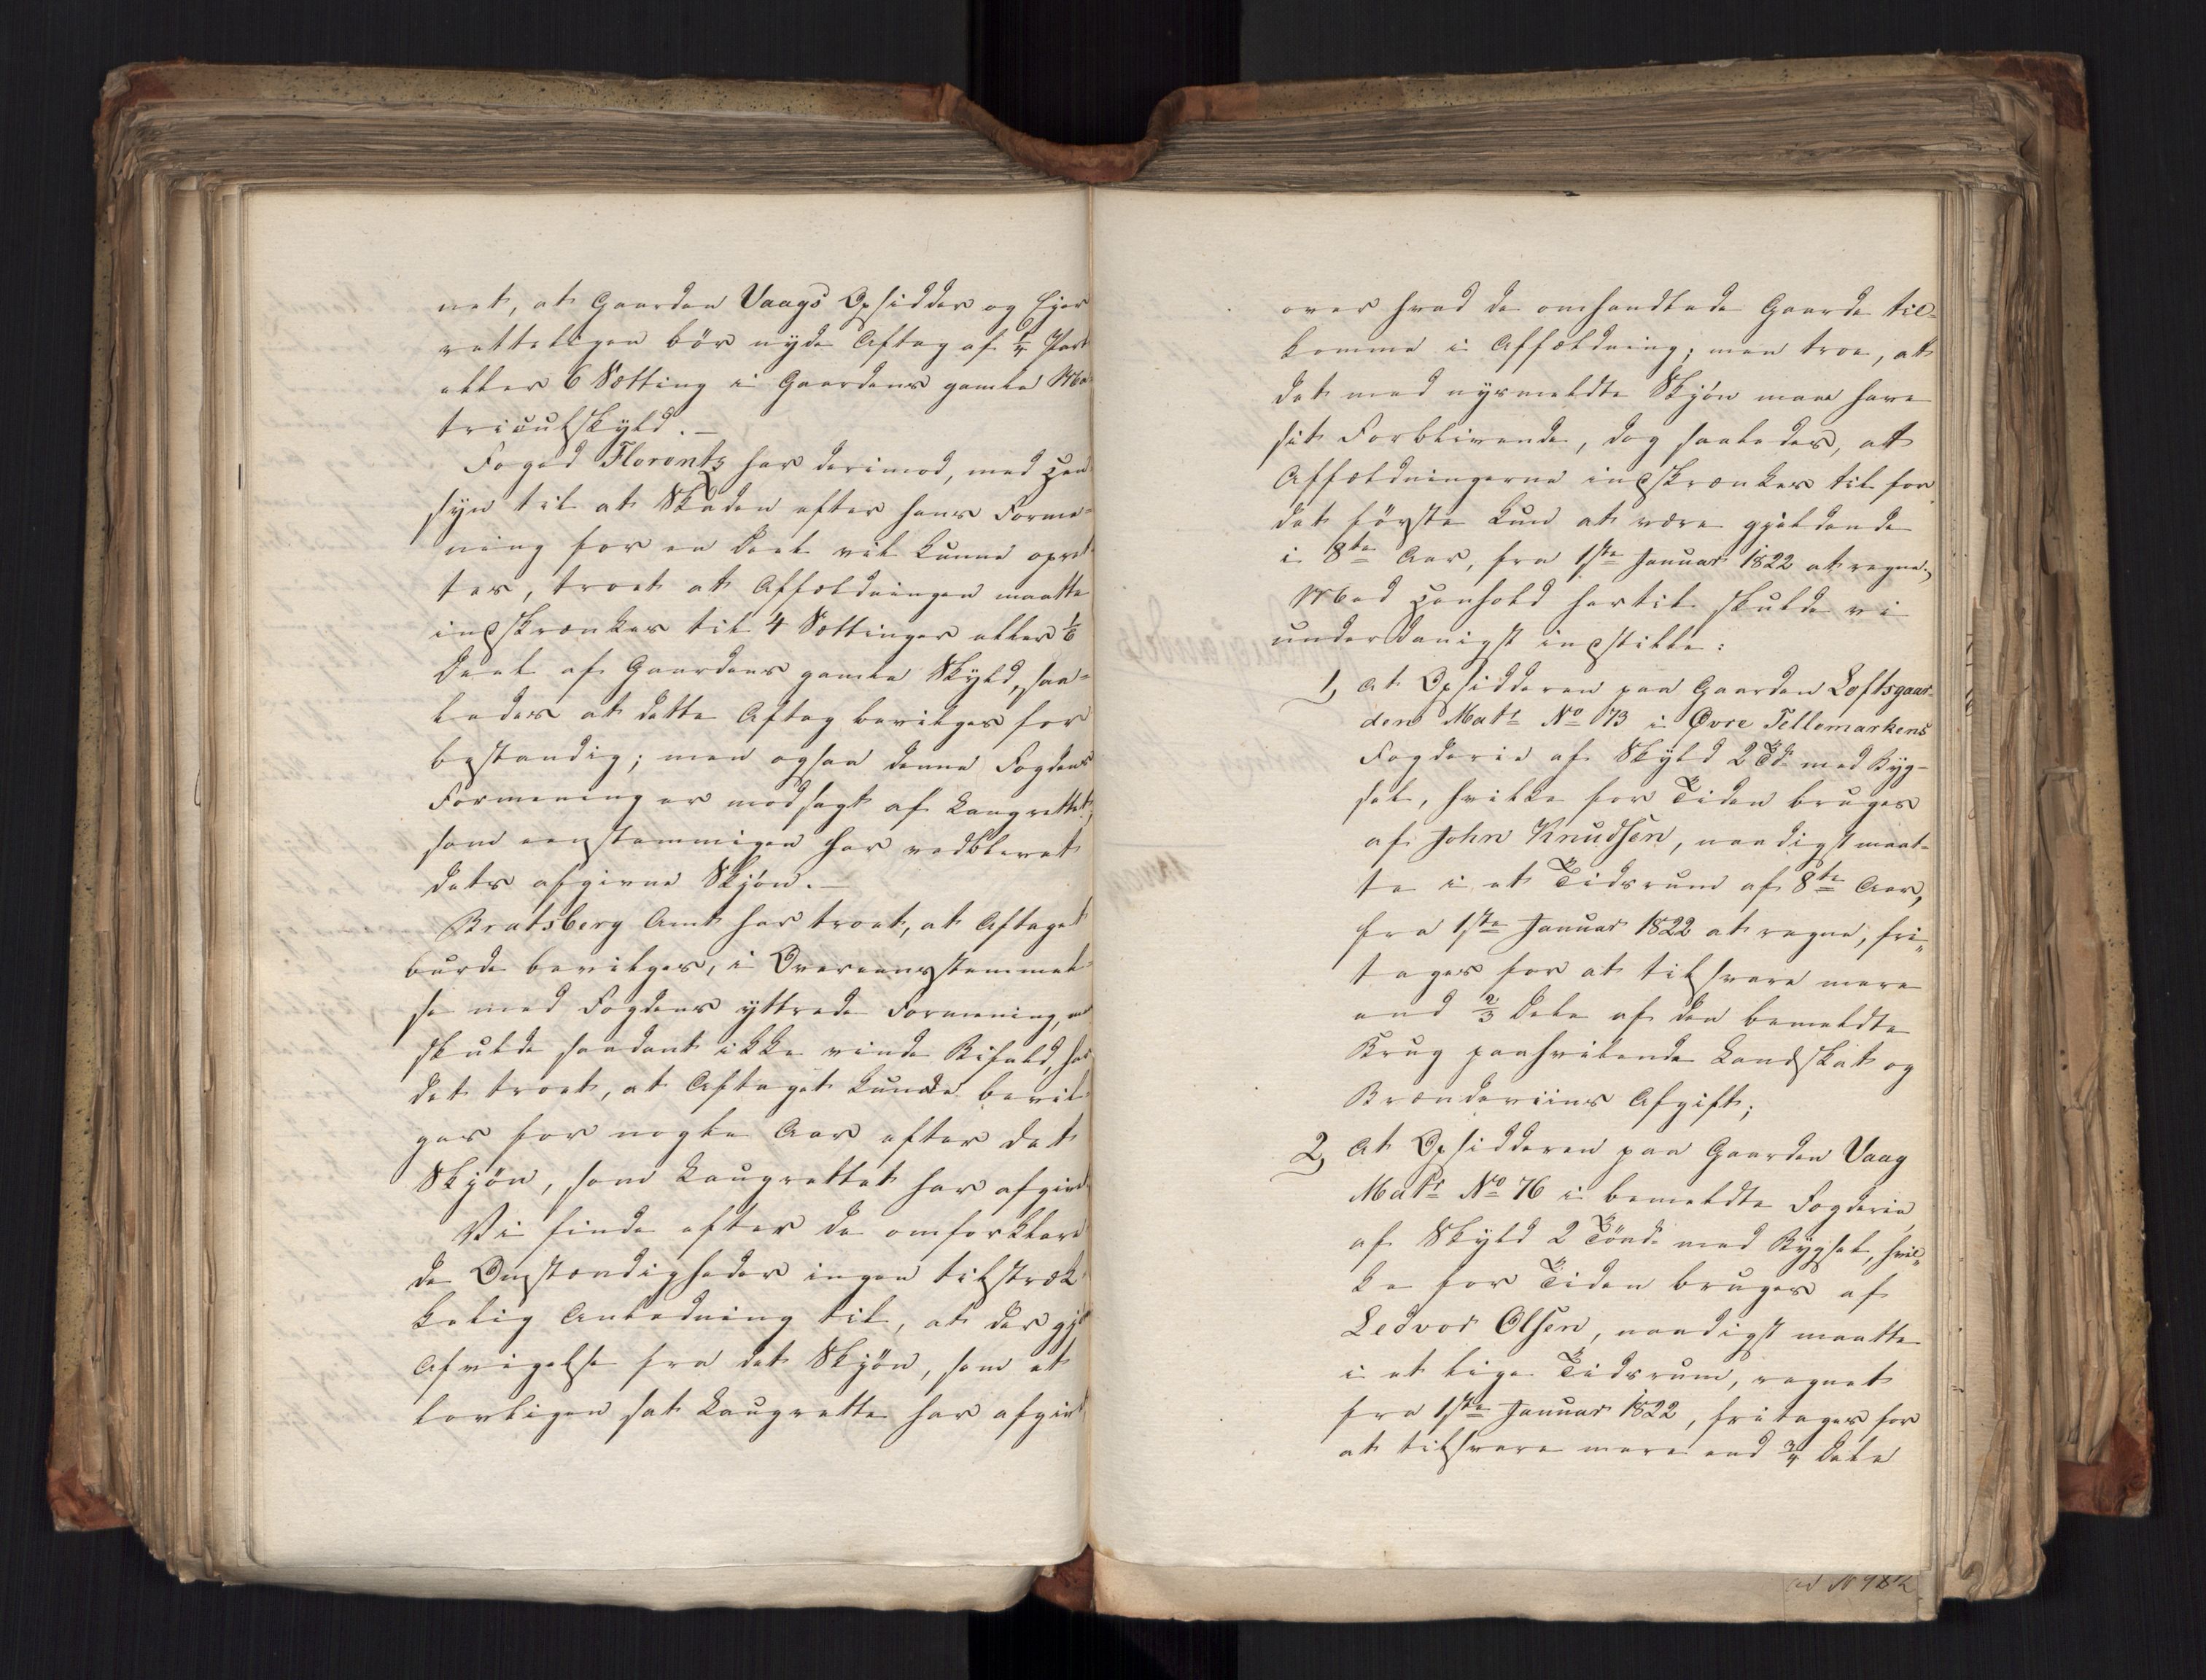 net, at Gaarden Vaags Opsidder og Ejer
retteligen bör nyde Aftag af 1/4 Part
eller 6 Sætting i Gaardens gamle Ma-
triculskyld. —
Foged Florentz har derimod, med Hen-
syn til at Skaden efter hans Forme-
ning for en Deel vil kunne opret-
tes, troet at Affældningen maatte
indskrænkes til 4 Sættinger eller 1/6
Deel af Gaardens gamle Skyld, saa-
ledes at dette Aftag bevilges for
bestandig; men ogsaa denne Fogdens
Formening er modsagt af Laugrettet,
som eenstemmigen har vedblevet
dets afgivne Skjön. —
Bratsberg Amt har troet, at Aftaget
burde bevilges, i Overeensstemmel-
se med Fogdens yttrede Formening, men
skulde saadant ikke vinde Bifald, har
det troet, at Aftaget kunde bevil-
ges for nogle Aar efter det
Skjön, som Laugrettet har afgivet.
Vi finde efter de omforklare-
de Omstændigheder ingen tilstræk-
kelig Anledning til, at der gjö
Afvigelse fra det Skjön, som et
lovligen sat Laugrette har afgivet
over hvad de omhandlede Gaarde til-
komme i Affældning; men troe, at
det med nysmeldte Skjön maae have
sit Forblivende, dog saaledes, at
Affældningerne indskrænkes til for
det förste kun at være gjeldende
i 8te Aar, fra 1ste Januar 1822 at regne.
Med Henhold hertil skulde vi
underdanigst indstille:
1, At Opsidderen paa Gaarden Loftsgaar-
den Matr No 73 i Övre Tellemarkens
Fogderie af Skyld 2 Td. med Byg-
sel, hvilke for Tiden bruges
af John Knudsen, naadigst maat-
te i et Tidsrum af 8te Aar,
fra 1ste Januar 1822 at regne, fri-
tages for at tilsvare mere
end 2/3 Dele af den bemeldte
Brug paahvilende Landskat og
Brændeviins Afgift;
2, At Opsidderen paa Gaarden Vaag
Matr No 76 i bemeldte Fogderie,
af Skyld 2 Tönd. med Bygsel, hvil-
ke for Tiden bruges af
Ledvor Olsen, naadigst maatte
i et lige Tidsrum, regnet
fra 1ste Januar 1822, fritages for
at tilsvare mere end 3/4 Dele